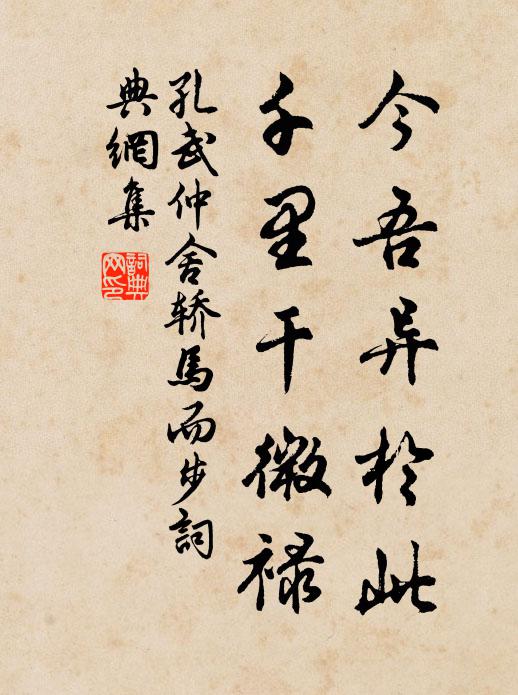 今吾异於此
千里干微禄
孔武仲舍轿馬而步詞
典網集
詞典
网印